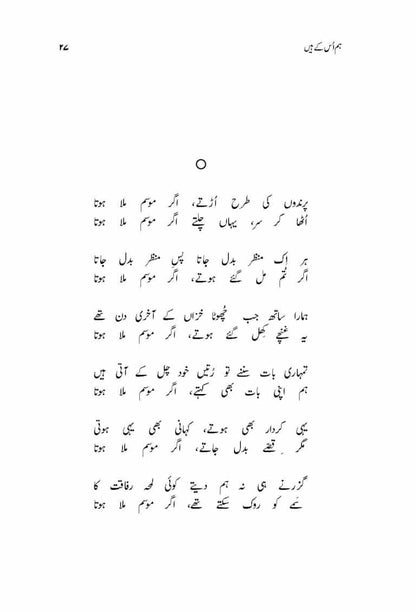 ہم اُس کے ہیں
۲۷
پرندوں کی طرح اُڑتے، اگر موسم ملا ہوتا
اُٹھا کر سر، یہاں چلتے اگر موسم ملا ہوتا
ہر اِک منظر بدل جاتا پسِ منظر بدل جاتا
اگر تُم مل گئے ہوتے، اگر موسم ملا ہوتا
ہمارا ساتھ جب چُھوٹا خزاں کے آخری دن تھے
یہ غنچے کِھل گئے ہوتے، اگر موسم ملا ہوتا
تمہاری بات سننے تو رُتیں خود چل کے آتی ہیں
ہم اپنی بات بھی کہتے، اگر موسم ملا ہوتا
یہی کردار بھی ہوتے، کہانی بھی یہی ہوتی
مگر قصّے بدل جاتے، اگر موسم ملا ہوتا
گزرنے ہی نہ ہم دیتے کوئی لمحہ رفاقت کا
سَمے کو روک سکتے تھے، اگر موسم ملا ہوتا